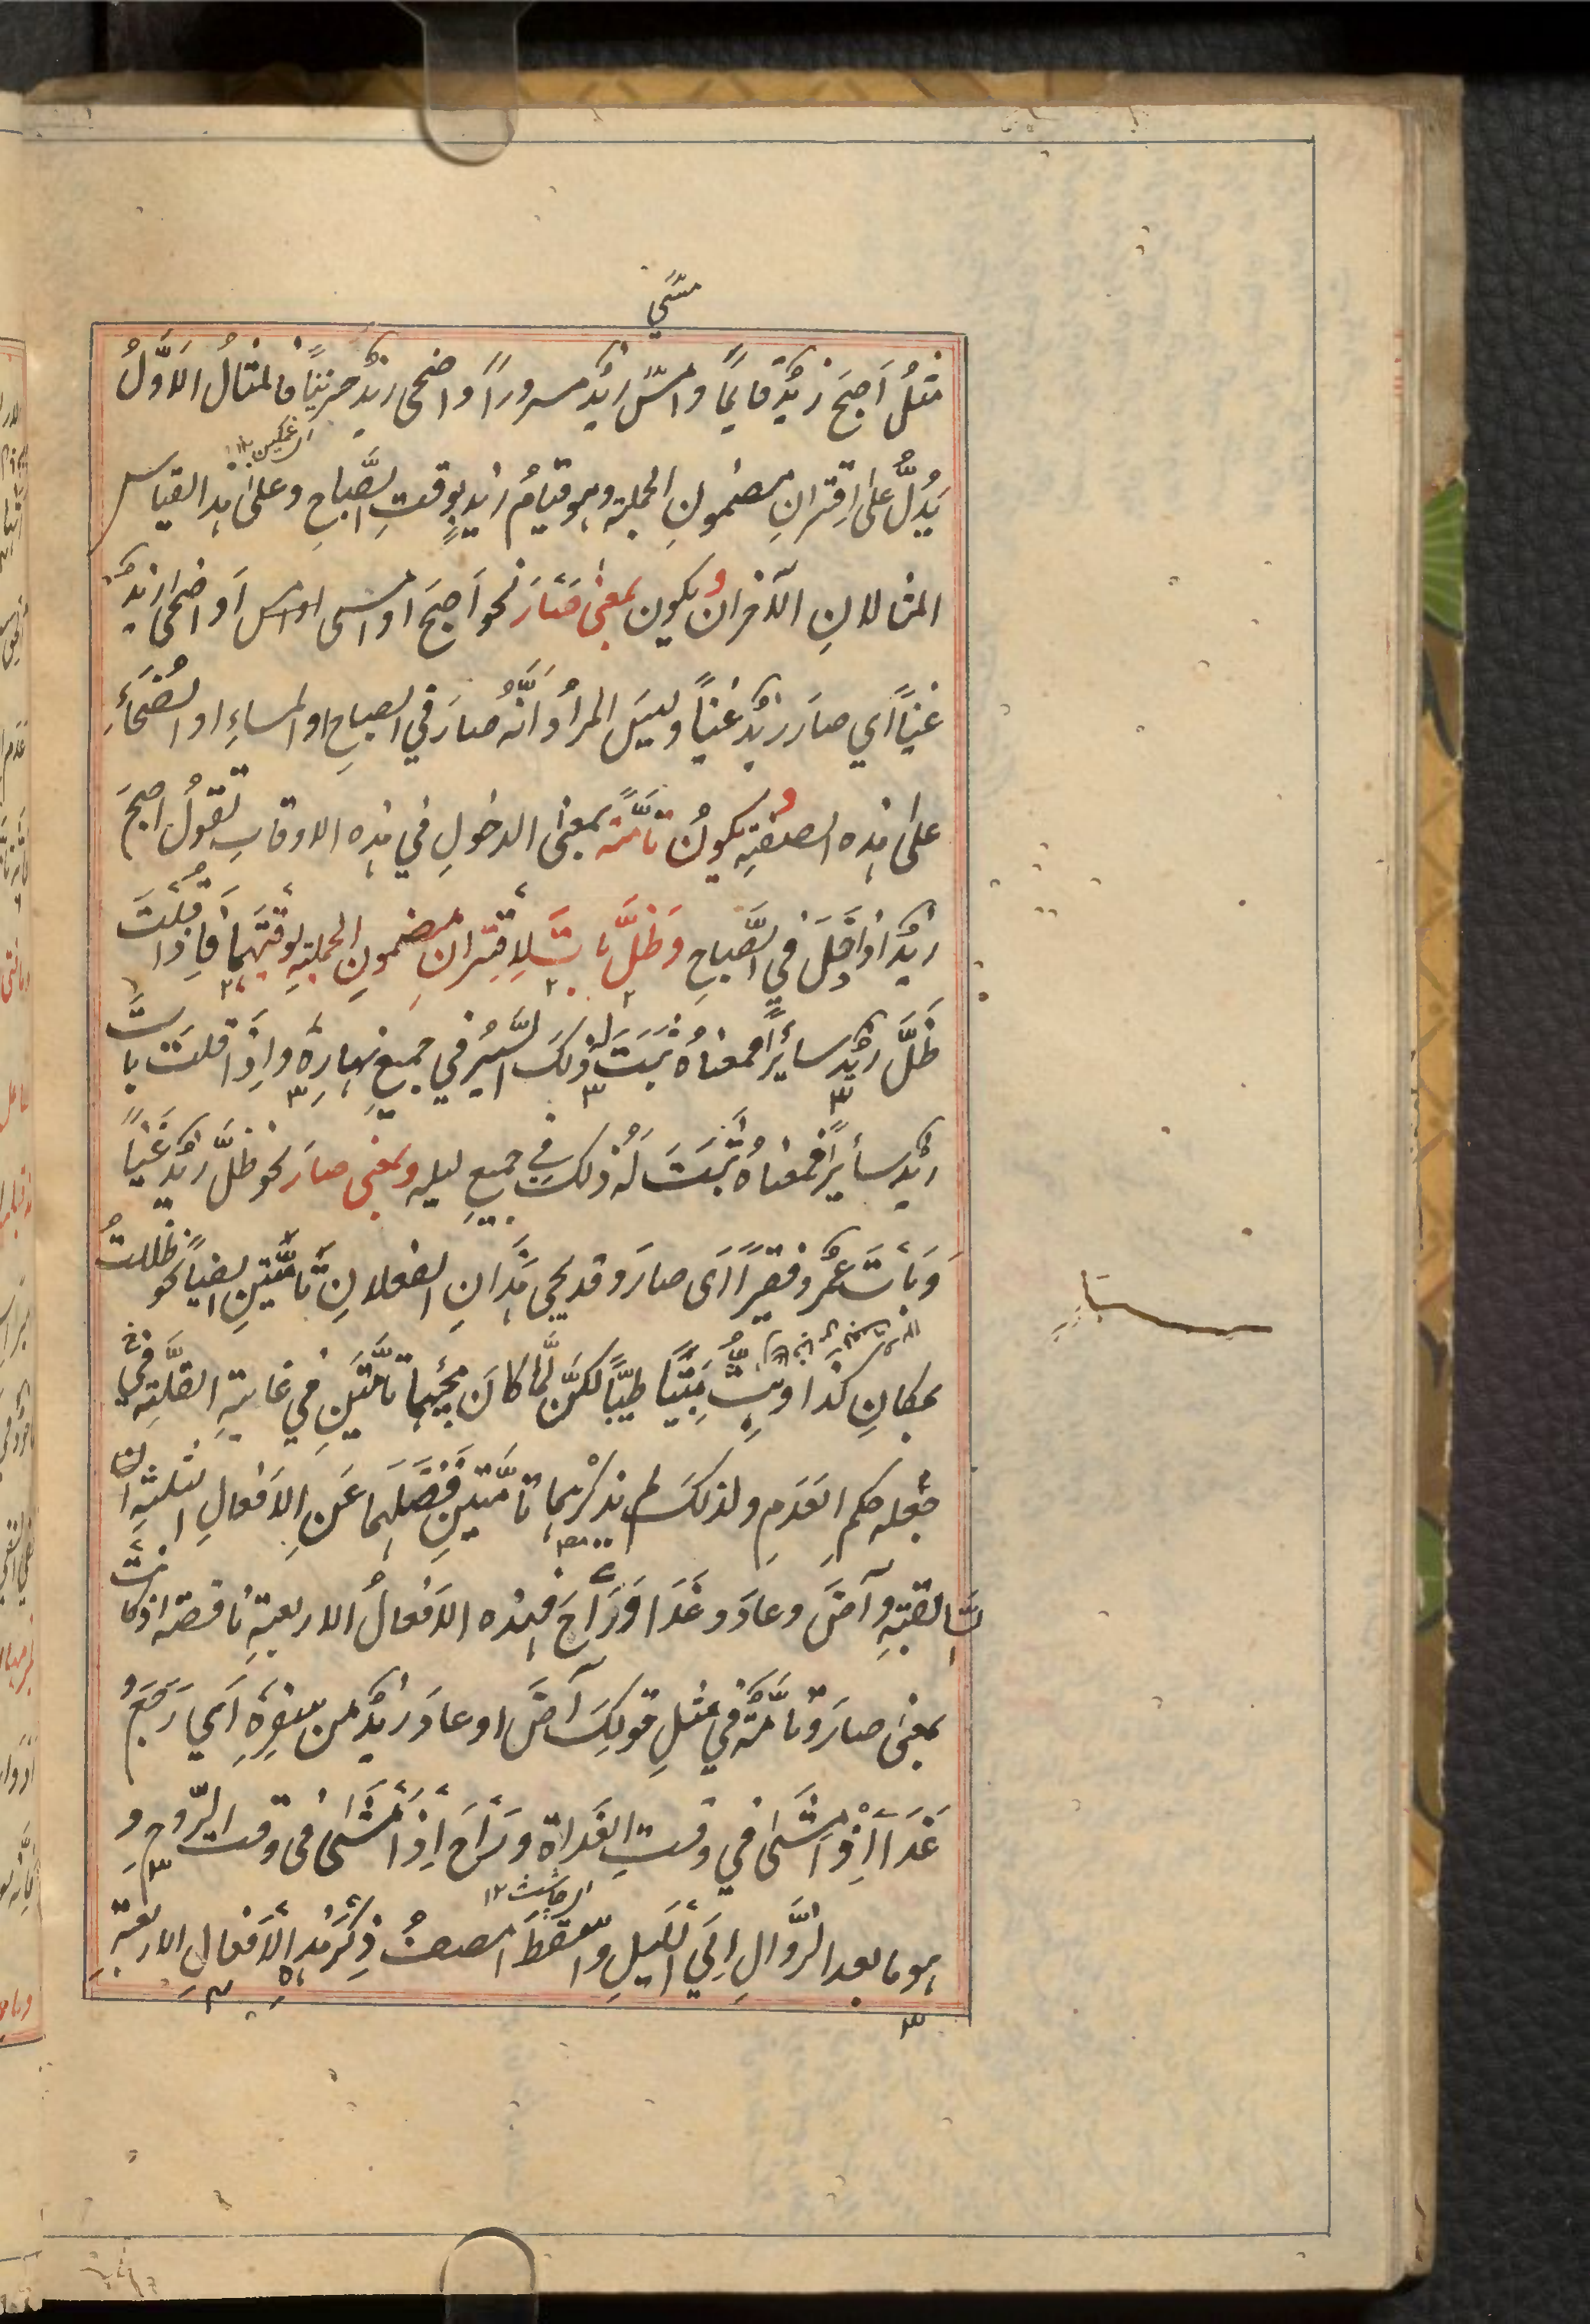 مسي
مِثلُ اَصبحَ زيدٌ قايمًا وامسٰ زيدٌ مسرورًا واضحى زيدٌ حزينًا فالمثالُ الاَوَّلُ
اى غمكين ۱۲
يَدُلُّ علىٰ اِقترانِ مضمونِ الجملة وهو قيامُ زيدٍ بوقتِ الصَّباحِ وعلىٰ هذا القياس
المثالانِ الآخران ويكون بمعنى صَارَ نحو اَصبحَ او امسى او امسى اَو اضحىٰ زيدٌ
غنيًا اي صارَ زيدٌ غنيًا وليسَ المرادُ اَنَّهُ صارَ في الصباحِ او المساءِ او الضُّحَاءِ
علىٰ هذه الصفةِ ويكونُ تامَّةً بمعنى الدخولِ في هذه الاوقاتِ تقولُ اصبحَ
زيدٌ اِذا دَخَلَ في الصَّباحِ وَظَلَّ باتَ لِاقتِرانِ مضمونِ الجملةِ بوقتَيهِمَا فَاِذا قُلتَ
ظَلَّ زيدٌ سايرًا فمعناهُ ثَبَتَ له ذلكَ السَّيرُ في جميعِ نهارِهٖ واِذَا قلتَ باتَ
زيدٌ سايرًا فمعناهُ ثَبَتَ لَهُ ذلكَ في جميعِ ليله وبمعنى صارَ نحو ظَلَّ زيدٌ غَنِيًا
وَبَاتَ عمرٌو فقيرًا اَى صارَ وقد يجى هذَانِ الفعلانِ تَامَّتينِ ايضًا نحو ظللتُ
بمكانِ كذا وبِتُّ مَبِيتًا طيّبًا لكن لَّما كانَ مجيئهما تامَّتَينِ في غايةِ القلَّةِ في
جعله حكم العَدَمِ ولذلكَ لم يذكرْهما تامَّتينِ فَصَّلَهمَا عَنِ الاَفعالِ الثلثةِ ال
سابقةِ وآضَ وعادَ وغَدَا وَرَاحَ فهذه الاَفعالُ الاربعةِ ناقصة اذا كانتْ
بمعنى صارَ وتامَّةٌ في مثلِ قولِكَ آضَ او عادَ زيدٌ من سفرِهٖ اَي رَجَعَ
غَدَا اِذْا مشىٰ في وقتِ الغَداة وَرَاحَ اِذَا مَشىٰ فى وقت الرَّوحِ و
هو ما بعد الزَّوالِ اِلَي اللَّيلِ واسقطَ المصنفُ ذِكرَ هذه الاَفعالِ الاربعةِ